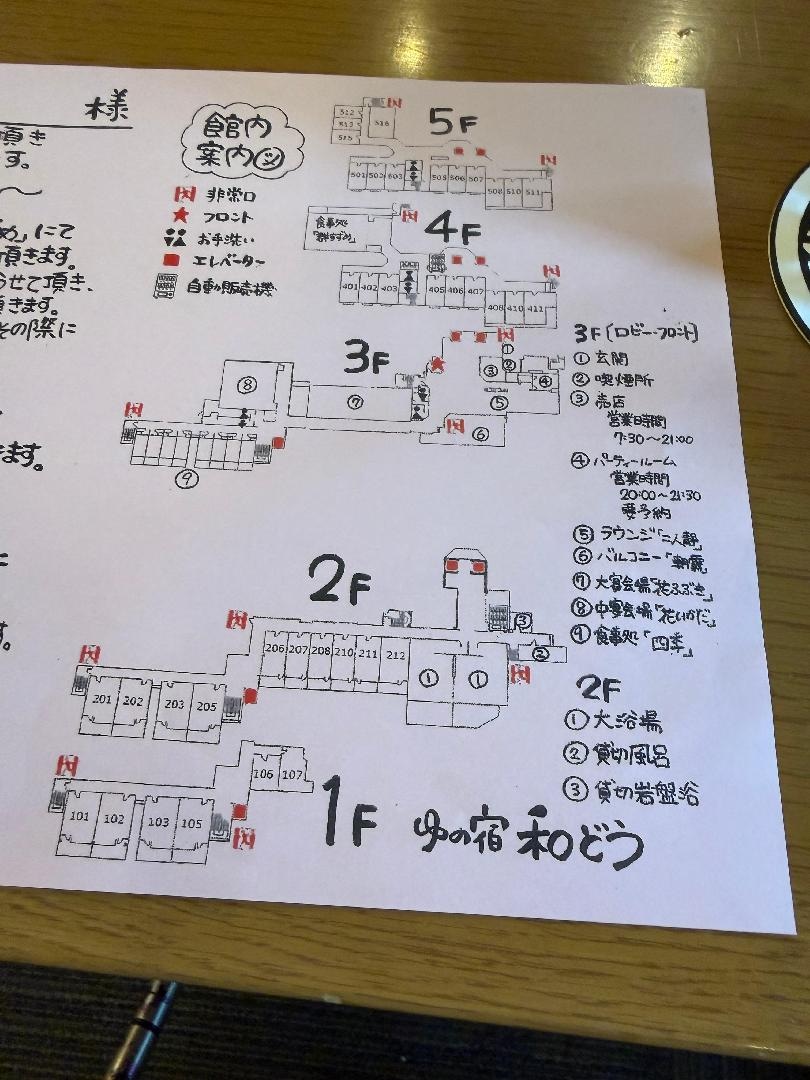 様
頂き
す。
にて
頂きます。
せて頂き、
きます。
その際に
ます。
す。
館内
案内
非常口
フロント
お手洗い
エレベーター
自動販売機
5F
512
513
515
516
501 502 503 505 506 507 508 510 511
4F
食事処
「群すずめ」
401 402 403 405 406 407 408 410 411
3F
① ② ③ ④ ⑤ ⑥ ⑦ ⑧ ⑨
3F〔ロビー・フロント〕
① 玄関
② 喫煙所
③ 売店
営業時間
7:30〜21:00
④ パーティールーム
営業時間
20:00〜21:30
要予約
⑤ ラウンジ「二人静」
⑥ バルコニー「朝霧」
⑦ 大宴会場「花ふぶき」
⑧ 中宴会場「花いかだ」
⑨ 食事処「四季」
2F
206 207 208 210 211 212 ① ① ② ③
201 202 203 205
2F
① 大浴場
② 貸切風呂
③ 貸切岩盤浴
1F
106 107
101 102 103 105
ゆの宿 和どう